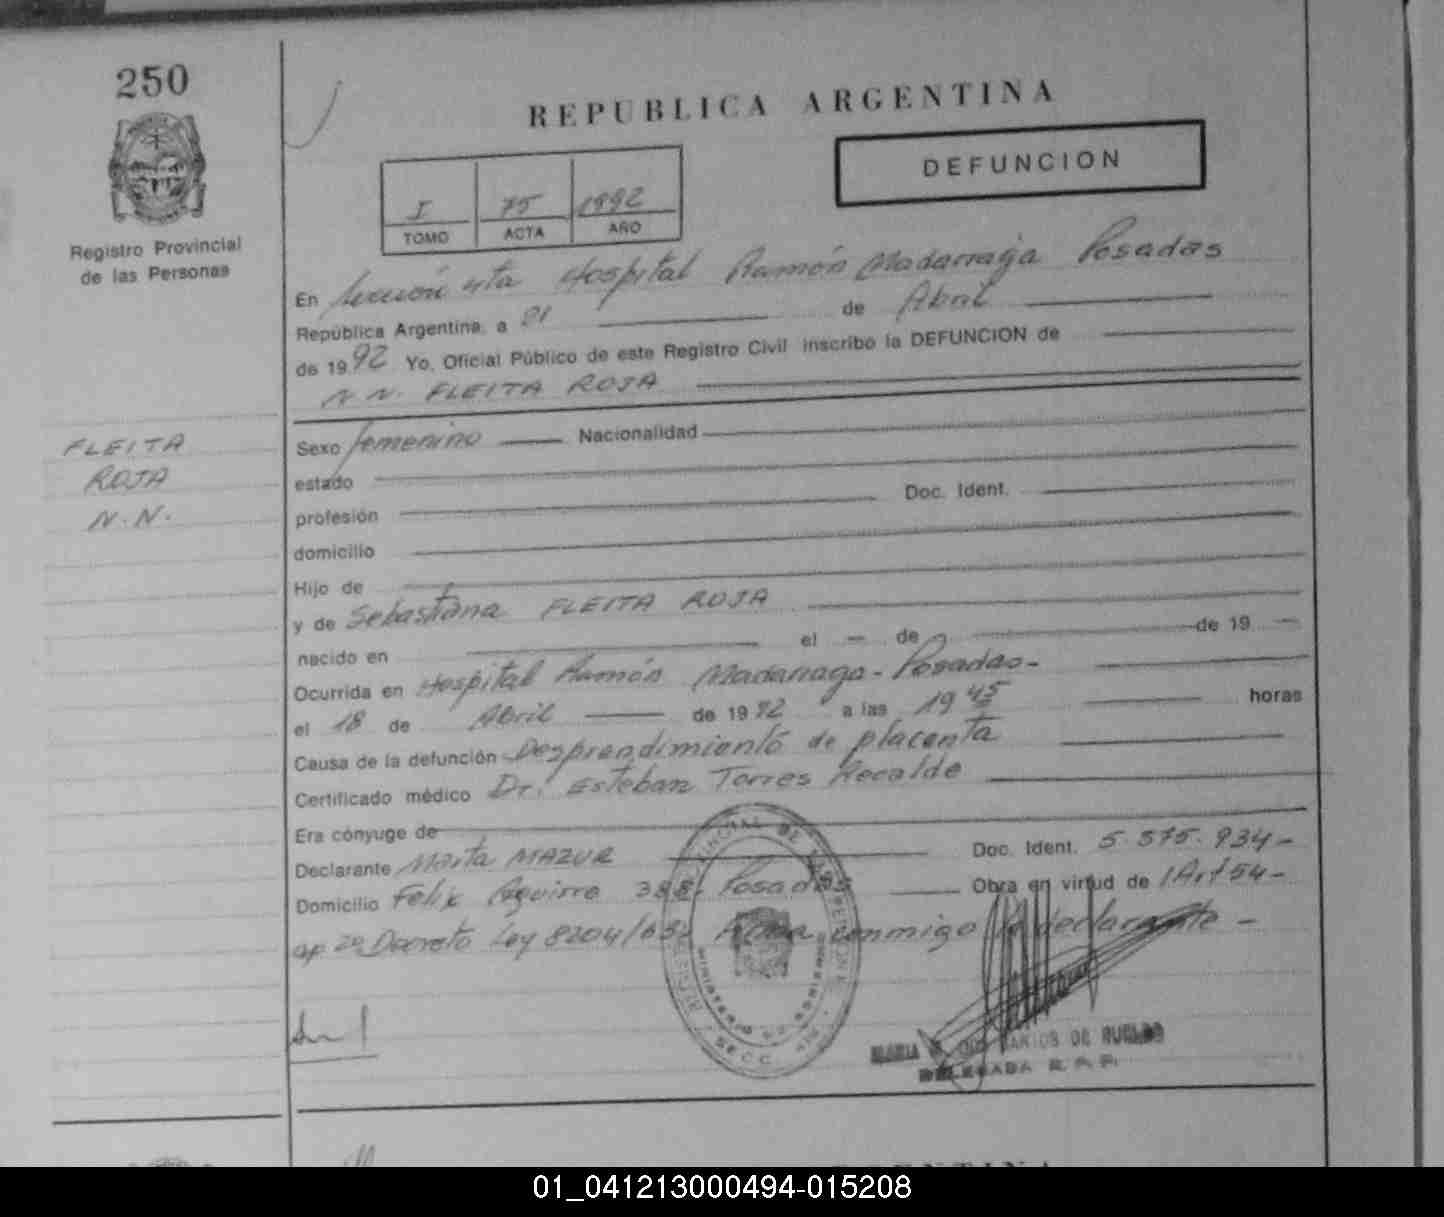 250
REPUBLICA ARGENTINA
DEFUNCION
I 75 1992
TOMO ACTA AÑO
Registro Provincial
de las Personas
En Sección 4ta Hospital Ramón Madarriaga Posadas
República Argentina, a 21 de Abril
de 1992 Yo, Oficial Público de este Registro Civil inscribo la DEFUNCION de
N.N. FLEITA ROJA
FLEITA
ROJA
N.N.
Sexo femenino Nacionalidad
estado
profesión Doc. Ident.
domicilio
Hijo de
y de Sebastiana FLEITA ROJA
nacido en el - de de 19 -
Ocurrida en Hospital Ramón Madariaga - Posadas -
el 18 de Abril de 1992 a las 19 45 horas
Causa de la defunción Desprendimiento de placenta
Certificado médico Dr. Esteban Torres Recalde
Era cónyuge de
Declarante Marta MAZUR Doc. Ident. 5.575.934-
Domicilio Felix Aguirre 388 Posadas Obra en virtud de 1 Art 54-
ap 2º Decreto Ley 8204/63. Firma conmigo la declarante -
MARIA DE RUELAS
DELEGADA R. P. P.
01_041213000494-015208